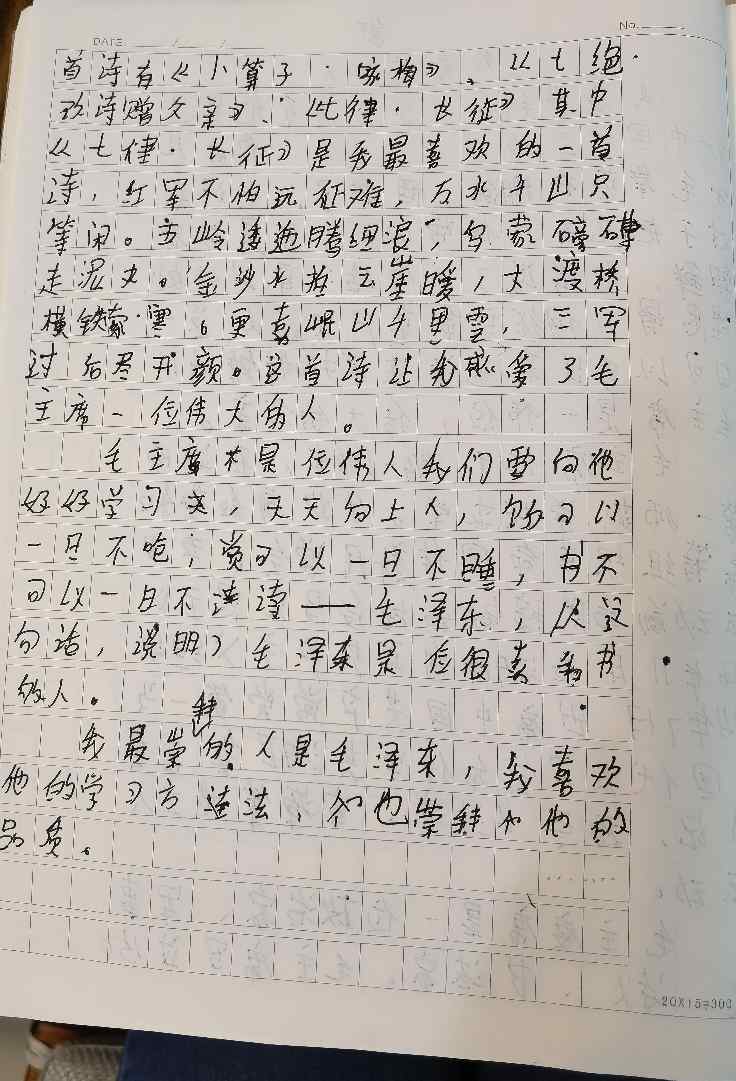 No.
DATE / /
首诗有《卜算子·咏梅》、《七绝·
改诗赠父亲》、《七律·长征》其中
《七律·长征》是我最喜欢的一首
诗,红军不怕远征难,万水千山只
等闲。五岭逶迤腾细浪,乌蒙磅礴
走泥丸。金沙水拍云崖暖,大渡桥
横铁索寒。更喜岷山千里雪,三军
过后尽开颜。这首诗让我感受了毛
主席一位伟大的人。
毛主席不是位伟人我们要向他
好好学习文,天天向上人,饭可以
一日不吃,觉可以一日不睡,书不
可以一日不读——毛泽东,从这
句话,说明了毛泽东是位很喜和书
的人。
我最崇拜的人是毛泽东,我喜欢
他的学习方法,和也崇拜和他的
品质。
20X15=300